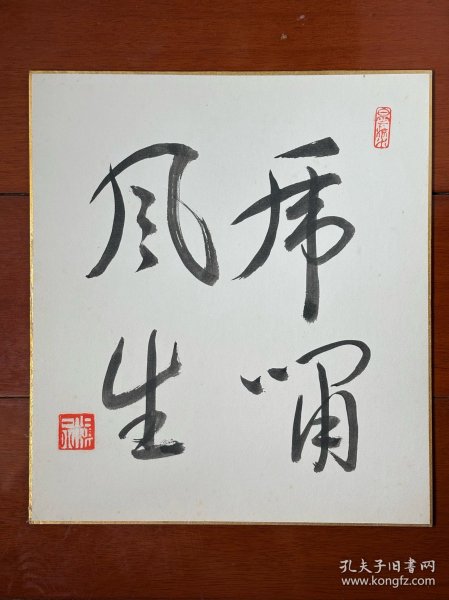 虎啸
风生
孔夫子旧书网
www.kongfz.com